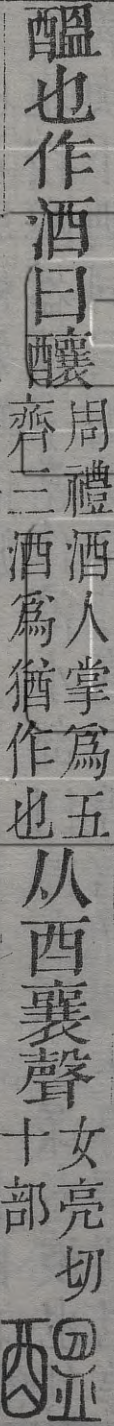 醞也作酒曰釀周禮酒人掌爲五齊三酒爲猶作也从酉襄聲女亮切十部醞